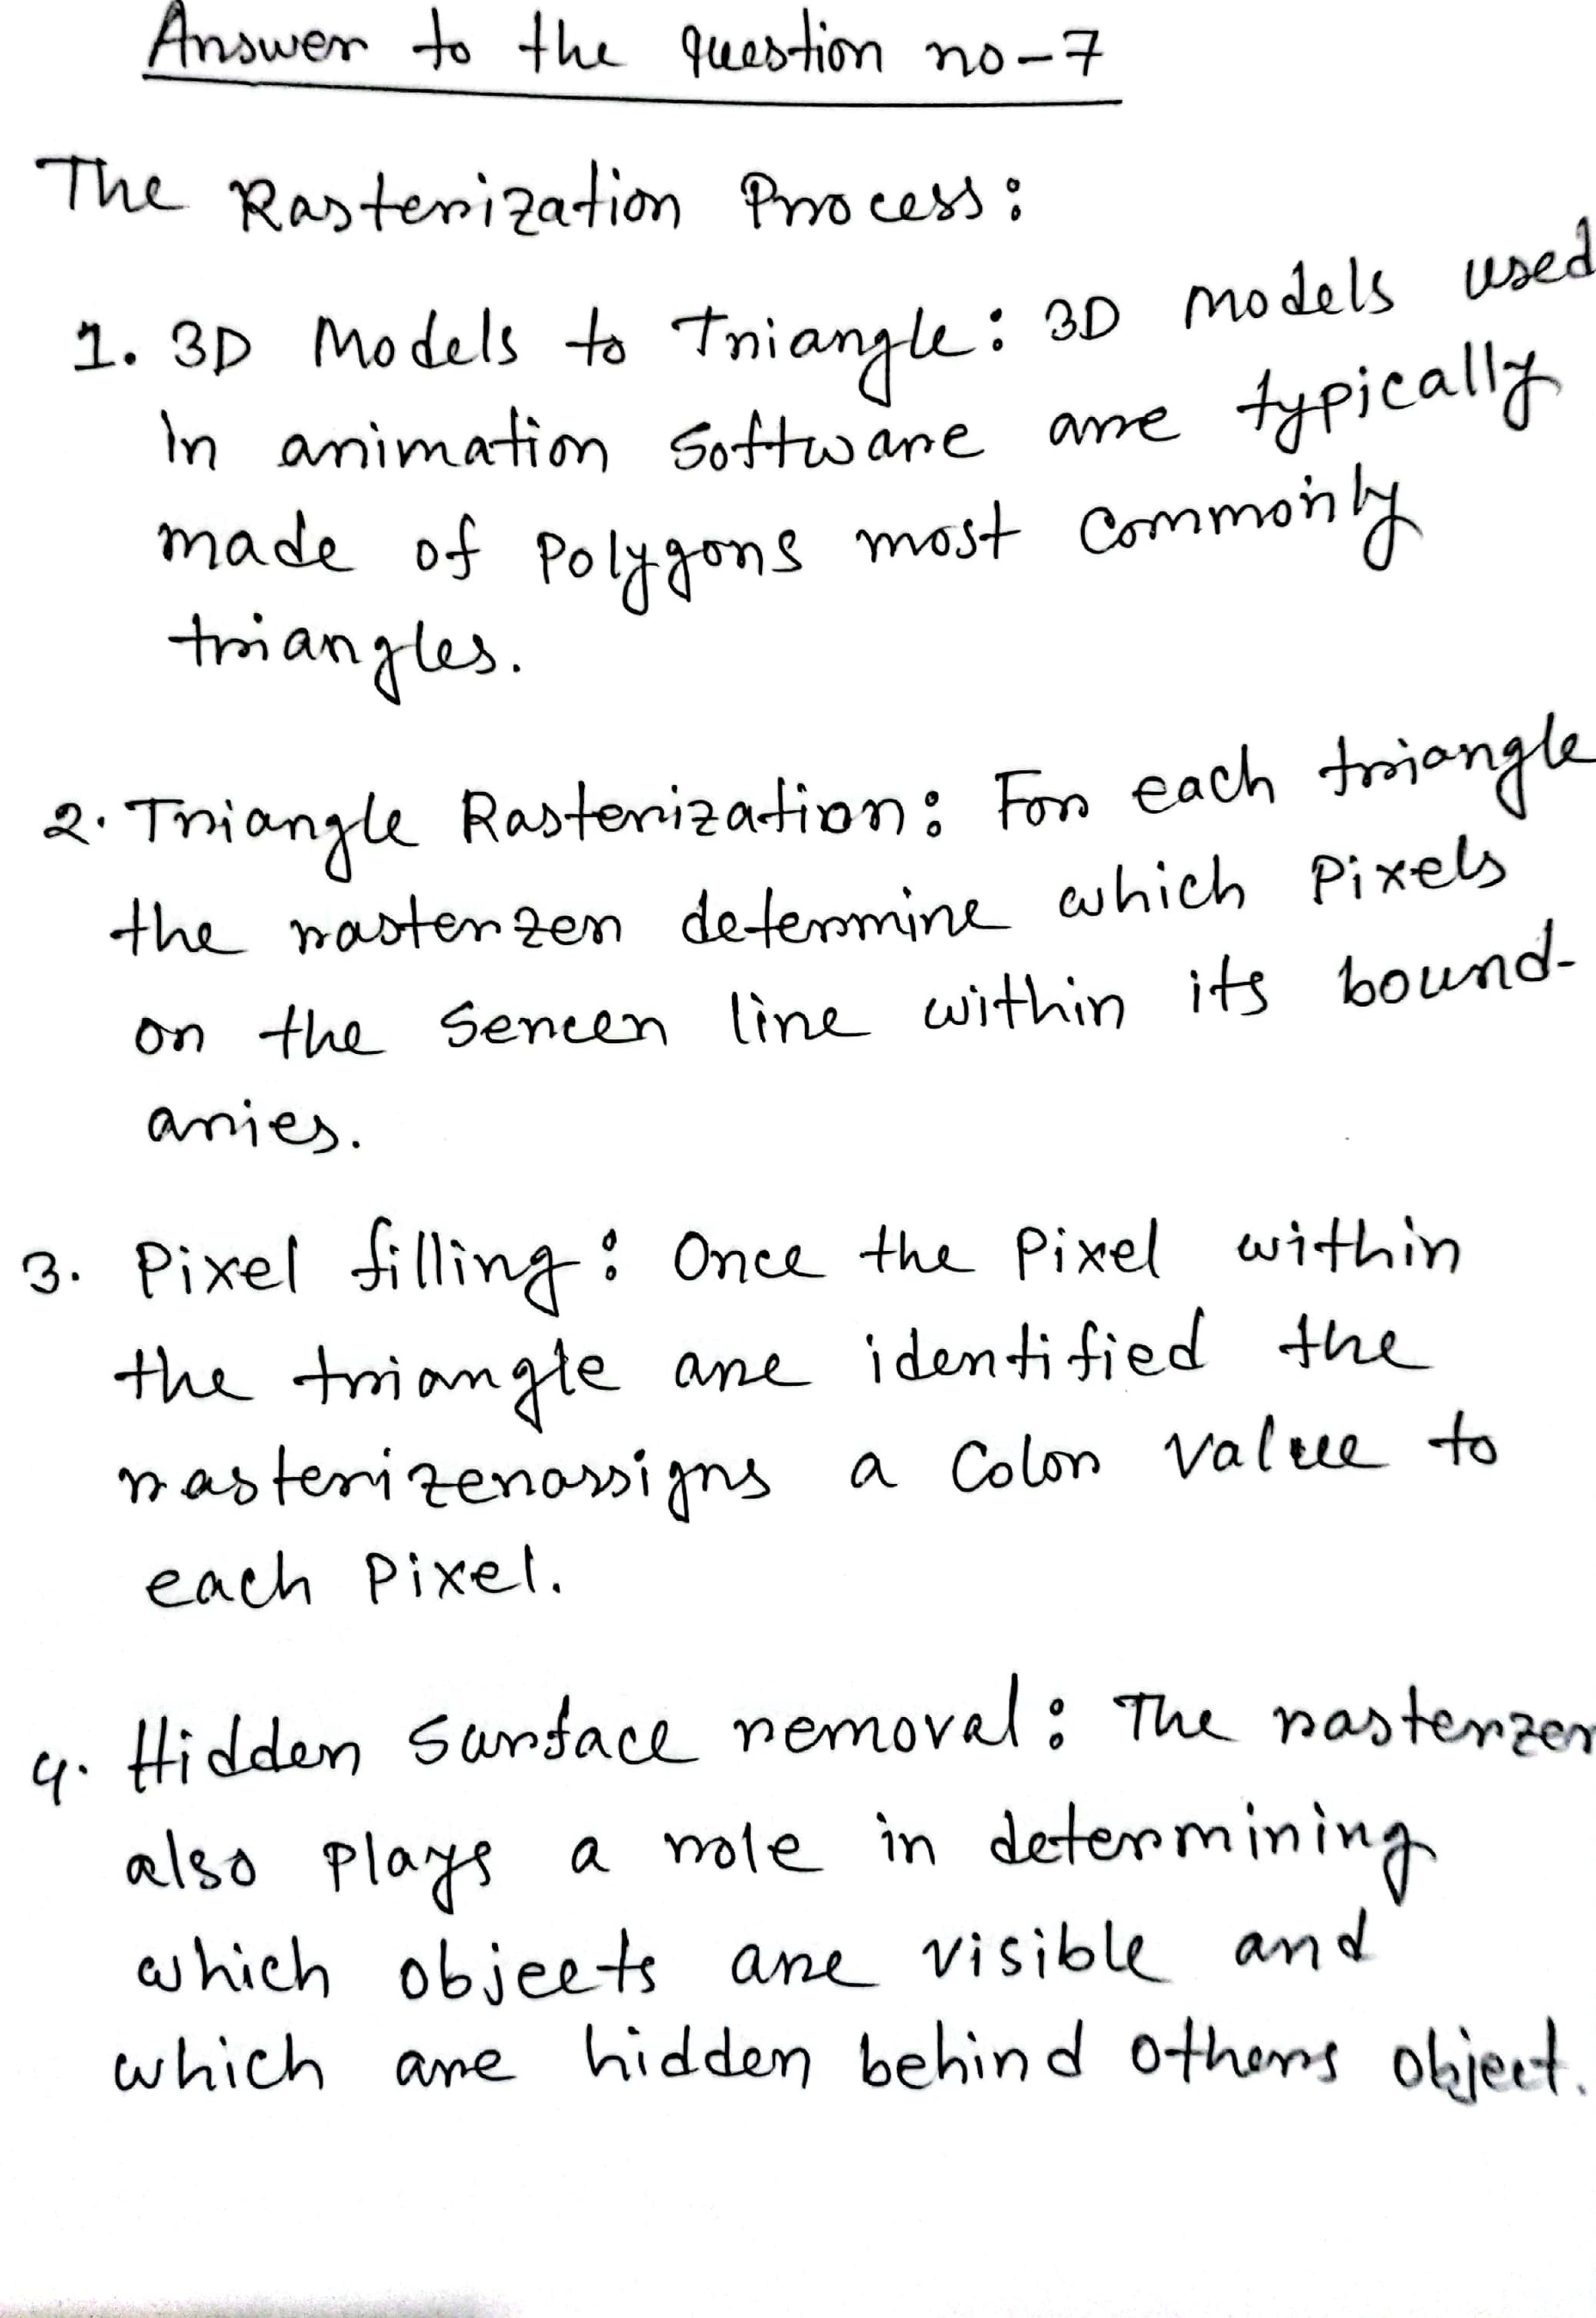 Answer to the question no-7
The Rasterization Process:
1. 3D Models to Triangle: 3D models used
in animation software are typically
made of Polygons most commonly
triangles.
2. Triangle Rasterization: For each triangle
the rasterzer determine which Pixels
on the screen line within its bound-
aries.
3. Pixel filling: Once the Pixel within
the triangle are identified the
rasterizerassigns a Color value to
each Pixel.
4. Hidden Surface removal: The rasterzer
also plays a role in determining
which objects are visible and
which are hidden behind others object.